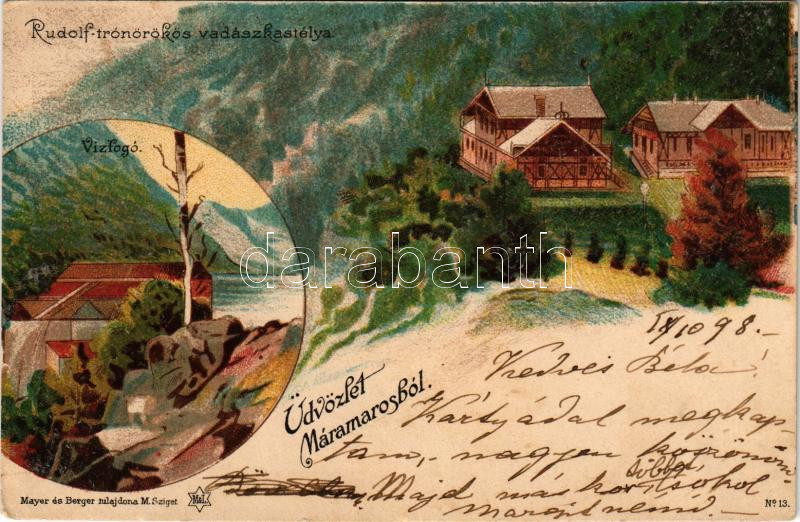 Rudolf-trónörökös vadászkastélya.
Vizfogó.
darabanth.com
Üdvözlet
Máramarosból.
10 98.-
Kedves Béla!
Kártyádat megkap-
tam,- nagyon köszönöm
Majd máskor többet
Mayer és Berger tulajdona M. Sziget.
M&L.
Nº 13.